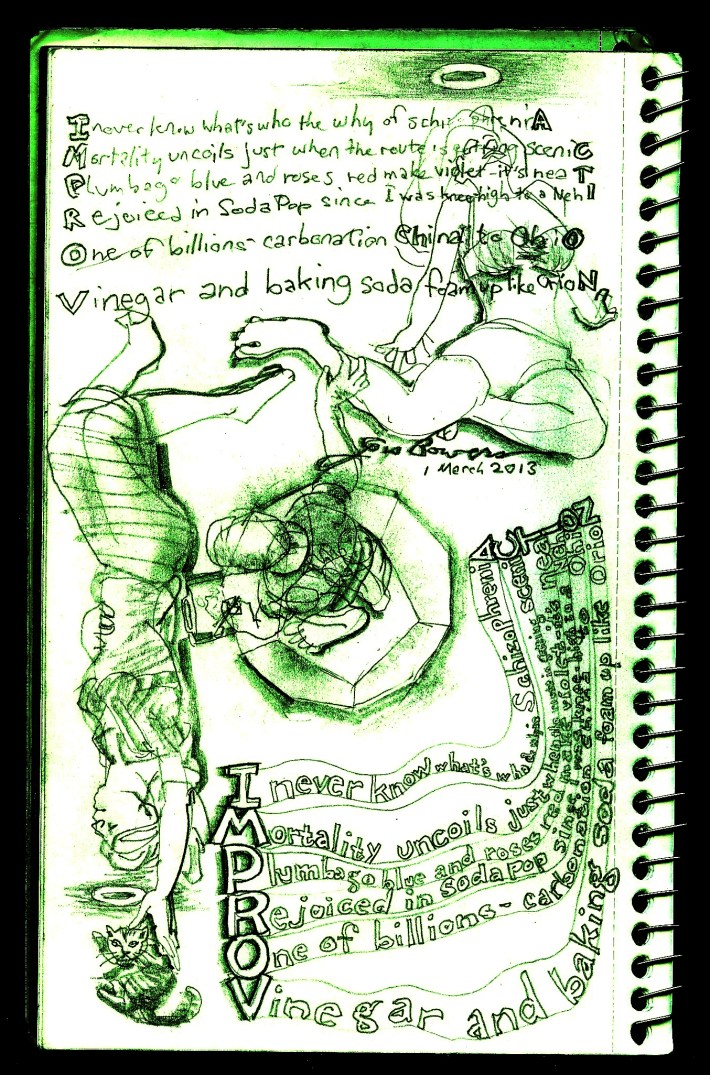 I never know what's who the why of schizophreniA
Mortality uncoils just when the route is getting sceniC
Plumbago blue and roses red make violet-it's neaT
Rejoiced in SodaPop since I was knee high to a NehI
One of billions- carbonation China to OhiO
Vinegar and baking soda foam up like OrioN
Bowers
1 March 2013
I never know what's who SchizophreniA
Mortality uncoils just when the route is getting sceniC
Plumbago blue and roses red make violet-it's neaT
Rejoiced in SodaPop since I was knee high to a NehI
One of billions- carbonation China to OhiO
Vinegar and baking soda foam up like OrioN